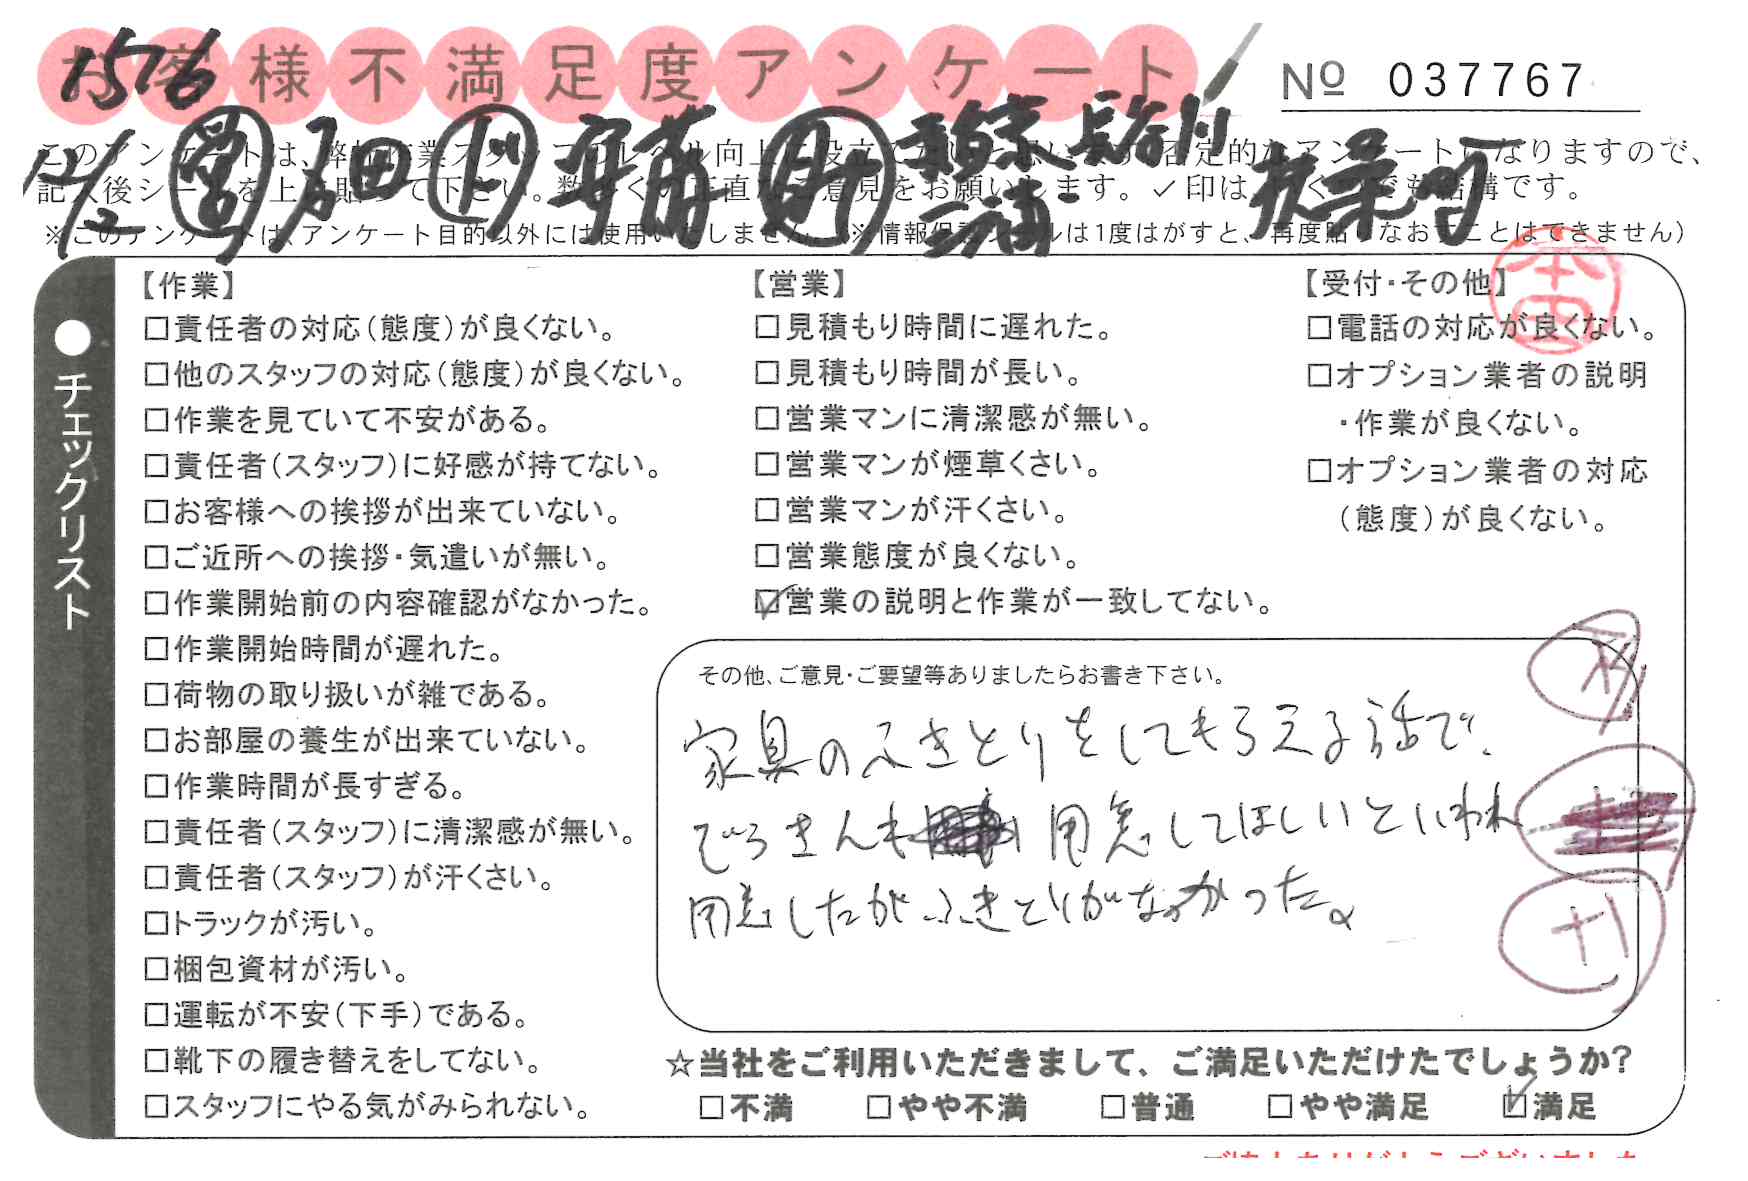 お客様不満足度アンケート
1576
Nº 037767
このアンケートは、弊社作業スタッフのレベル向上に役立てたいと思います。否定的なアンケートになりますので、
記入後シールを上に貼って下さい。数多くの正直なご意見をお願いします。✓印はいくつでも結構です。
※このアンケートは、アンケート目的以外には使用いたしません。(※情報保護シールは1度はがすと、再度貼りなおすことはできません)
12/2
●チェックリスト
【作業】
□責任者の対応(態度)が良くない。
□他のスタッフの対応(態度)が良くない。
□作業を見ていて不安がある。
□責任者(スタッフ)に好感が持てない。
□お客様への挨拶が出来ていない。
□ご近所への挨拶・気遣いが無い。
□作業開始前の内容確認がなかった。
□作業開始時間が遅れた。
□荷物の取り扱いが雑である。
□お部屋の養生が出来ていない。
□作業時間が長すぎる。
□責任者(スタッフ)に清潔感が無い。
□責任者(スタッフ)が汗くさい。
□トラックが汚い。
□梱包資材が汚い。
□運転が不安(下手)である。
□靴下の履き替えをしてない。
□スタッフにやる気がみられない。
【営業】
□見積もり時間に遅れた。
□見積もり時間が長い。
□営業マンに清潔感が無い。
□営業マンが煙草くさい。
□営業マンが汗くさい。
□営業態度が良くない。
☑営業の説明と作業が一致してない。
【受付・その他】
□電話の対応が良くない。
□オプション業者の説明
・作業が良くない。
□オプション業者の対応
(態度)が良くない。
その他、ご意見・ご要望等ありましたらお書き下さい。
家具のふきとりをしてもらえる話で、
ぞうきんも用意してほしいといわれ
用意したがふきとりがなかった。
☆当社をご利用いただきまして、ご満足いただけたでしょうか?
□不満 □やや不満 □普通 □やや満足 ☑満足